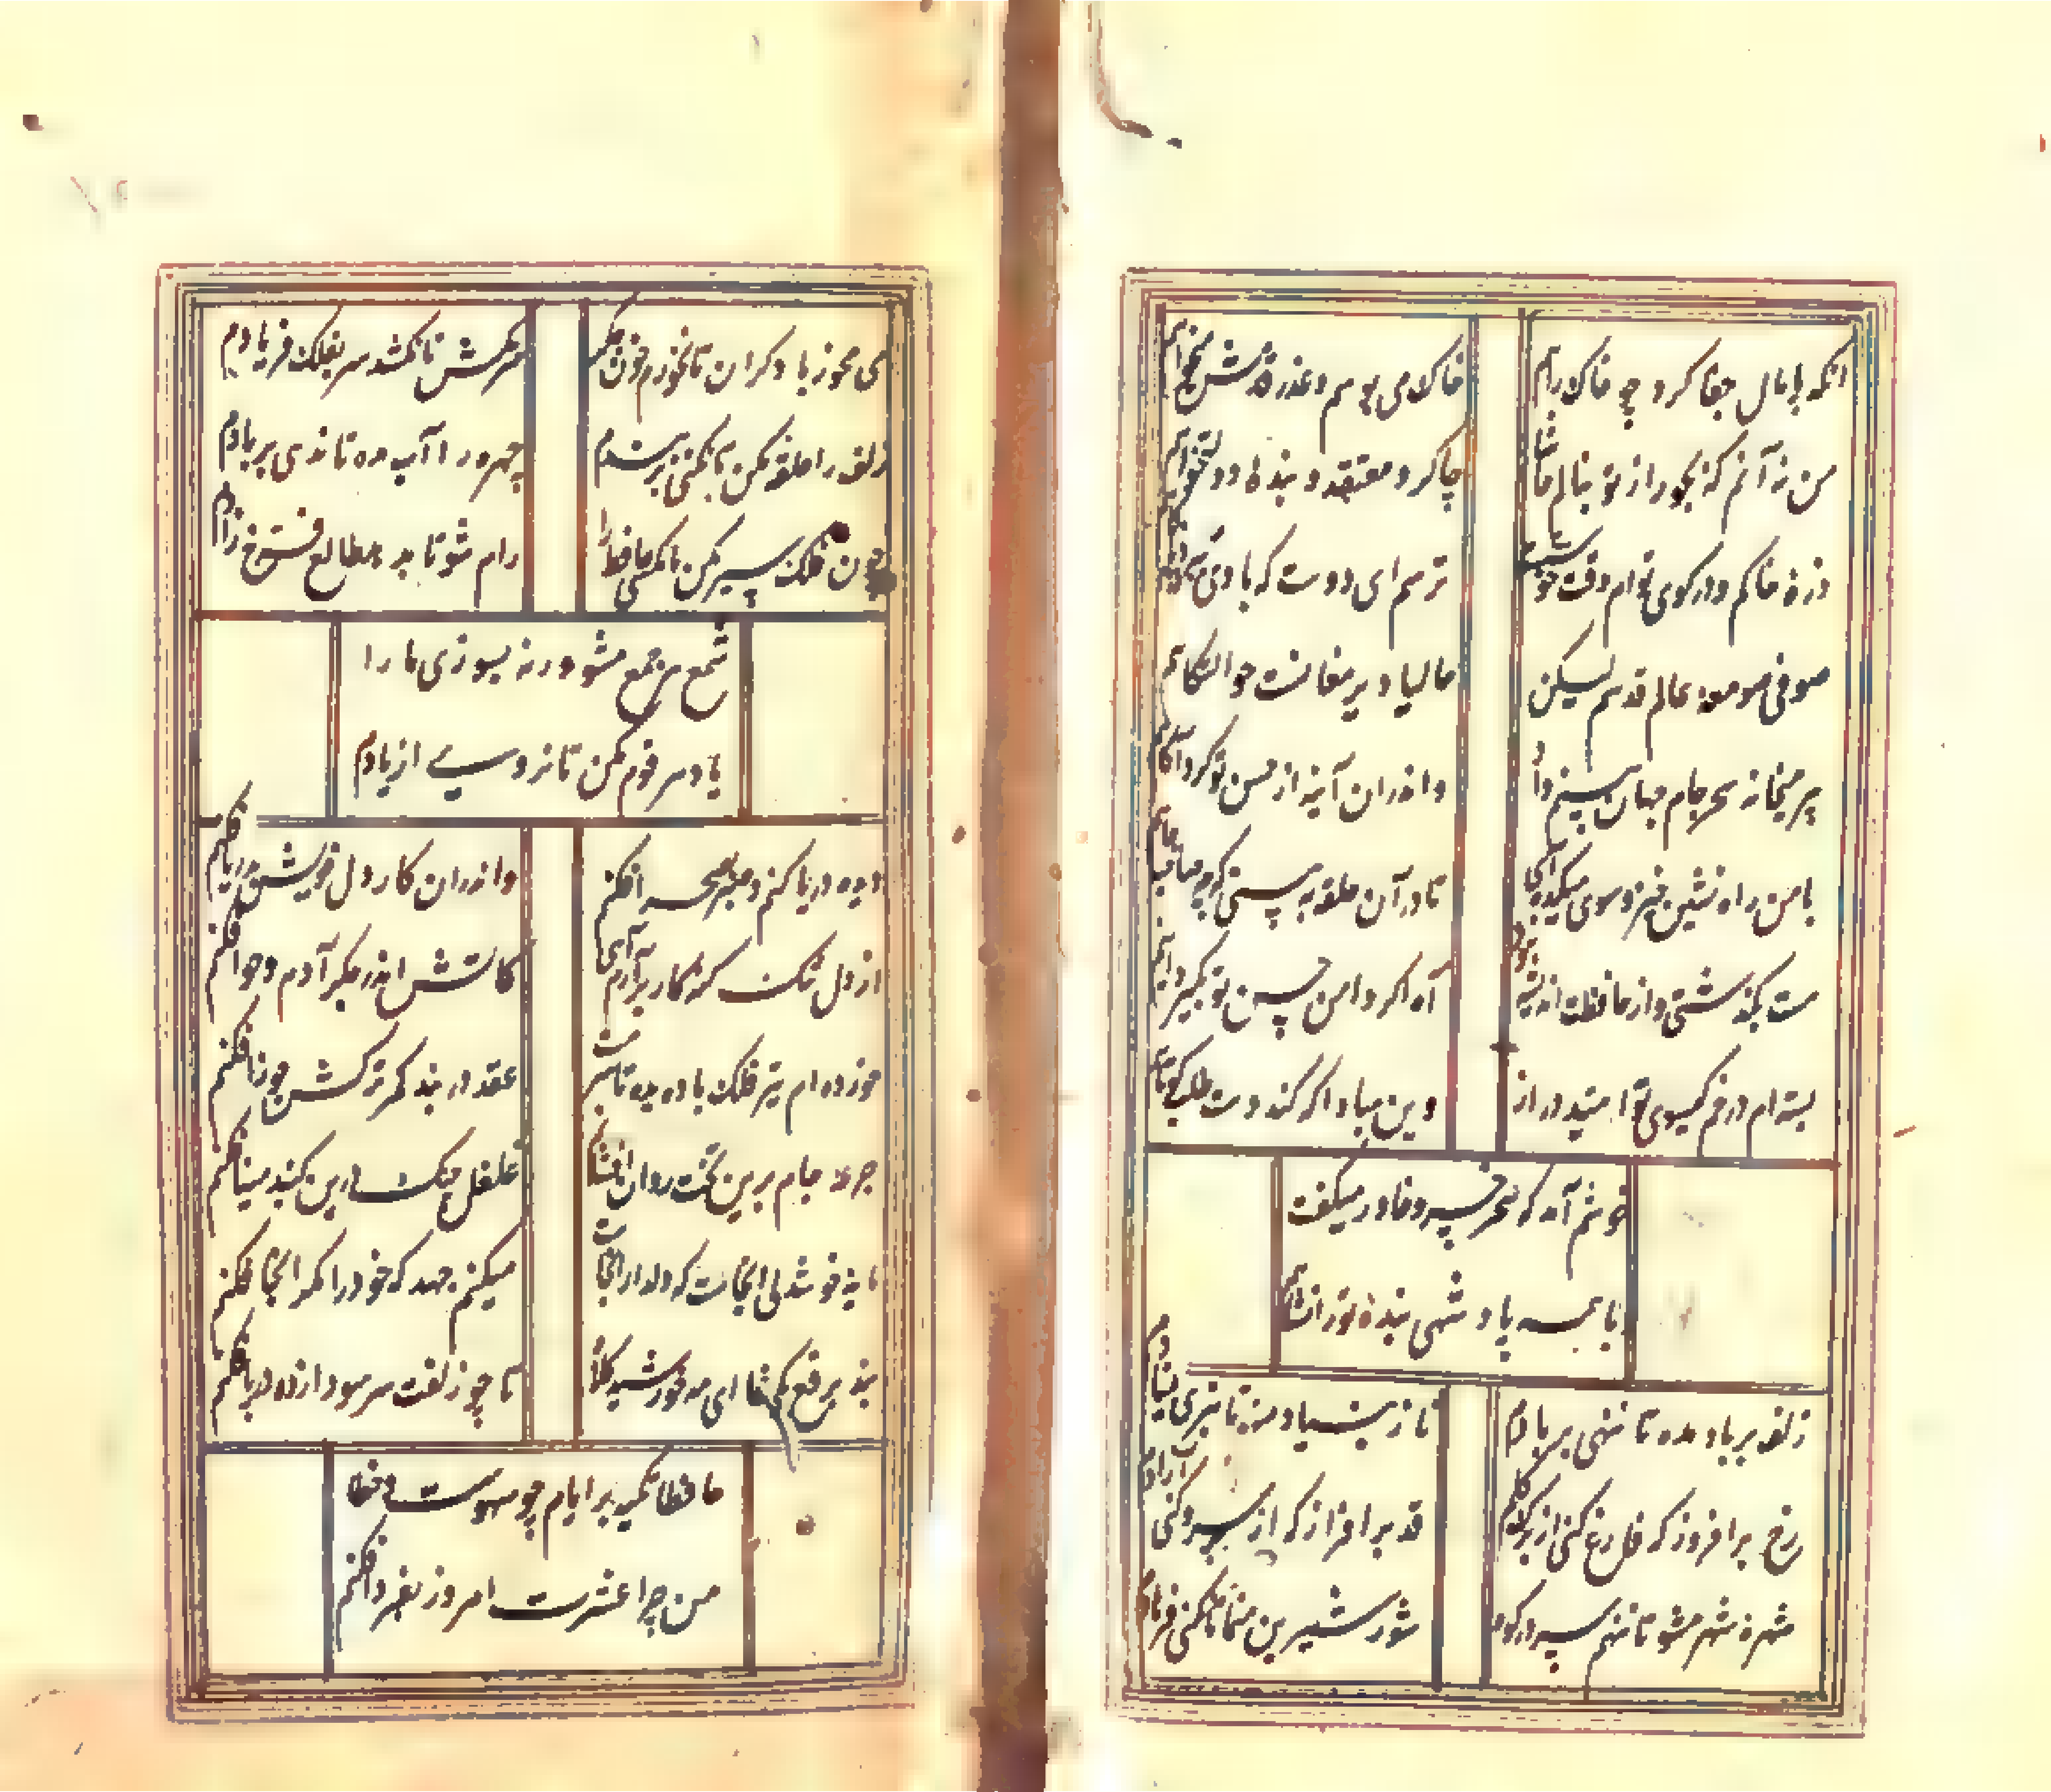 آنکه پامال جفا کرد چو خاک راهم
خاک می بوسم و عذر قدمش میخواهم
من نه آنم که بجور از تو بنالم حاشا
چاکر و معتقد و بنده دولتخواهم
ذره خاکم و در کوی توام وقت خوشست
ترسم ای دوست که بادی ببرد
صوفی صومعه عالم قدسم لیکن
حالیا دیر مغانست حوالتگاهم
پیر میخانه سحر جام جهان بینم داد
واندران آینه از حسن تو کرد آگاهم
با من راه نشین خیز و سوی میکده آی
تا در آن حلقه به بینی که چه صاحب جاهم
مست بگذشتی و از حافظت اندیشه نبود
آه اگر دامن حسن تو بگیرد آهم
بسته ام در خم گیسوی تو امید دراز
وین مبادا که کند دست طلب کوتاهم
خوشم آمد که سحر خسرو خاور میگفت
با همه پادشهی بنده تورانشاهم
زلف بر باد مده تا ندهی بر بادم
ناز بنیاد منه تا نبری بنیادم
رخ برافروز که فارغ کنی از برگ گلم
قد برافراز که از سرو کنی آزادم
شهره شهر مشو تا ننهم سر در کوه
شور شیرین منما تا نکنی فرهادم
می مخور با دگران تا نخورم خون جگر
سر مکش تا نکشد سر بفلک فریادم
زلف را حلقه مکن تا نکنی در بندم
چهره را آب مده تا ندهی بر بادم
چون فلک سیر مکن تا نکشی حافظ را
رام شو تا بدهد طالع فرخ زادم
شمع هر جمع مشو ورنه بسوزی ما را
یاد هر قوم مکن تا نروی از یادم
دیده دریا کنم و صبر بصحرا فکنم
واندران کار دل خویش بدریا فکنم
از دل تنگ گنه کار برآرم آهی
کآتش اندر جگر آدم و حوا فکنم
خورده ام تیر فلک باده بده تا سرمست
عقده در بند کمر ترکش جوزا فکنم
جرعه جام برین تخت روان افشانم
غلغل چنگ درین گنبد مینا فکنم
مایه خوشدلی آنجاست که دلدار آنجاست
میکنم جهد که خود را مگر آنجا فکنم
بند برقع بگشا ای مه خورشید کلاه
تا چو زلفت سر سودازده در پا فکنم
حافظا تکیه بر ایام چو سهوست و خطا
من چرا عشرت امروز بفردا فکنم